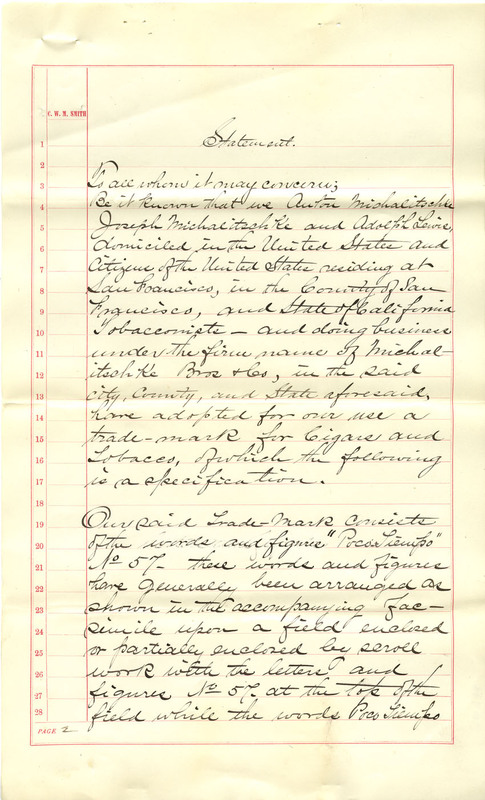 C. W. M. SMITH
Statement.
To all whom it may concern;
Be it known that we Anton Michalitschke
Joseph Michalitschke and Adolph Lewis,
domiciled in the United States and
Citizens of the United States residing at
San Francisco, in the County of San
Francisco, and State of California
Tobacconists – and doing business
under the firm name of Michal-
itschke Bros & Co, in the said
city, County, and State aforesaid,
have adopted for our use a
trade-mark for Cigars and
Tobacco, of which the following
is a specification.
Our said Trade-Mark consists
of the words and figures "Poco Tiempo"
No 57 – these words and figures
have generally been arranged as
shown in the accompanying fac-
simile upon a field enclosed
or partially enclosed by scroll
work with the letters and
figures No 57 at the top of the
field while the words Poco Tiempo
1
2
3
4
5
6
7
8
9
10
11
12
13
14
15
16
17
18
19
20
21
22
23
24
25
26
27
28
PAGE 2